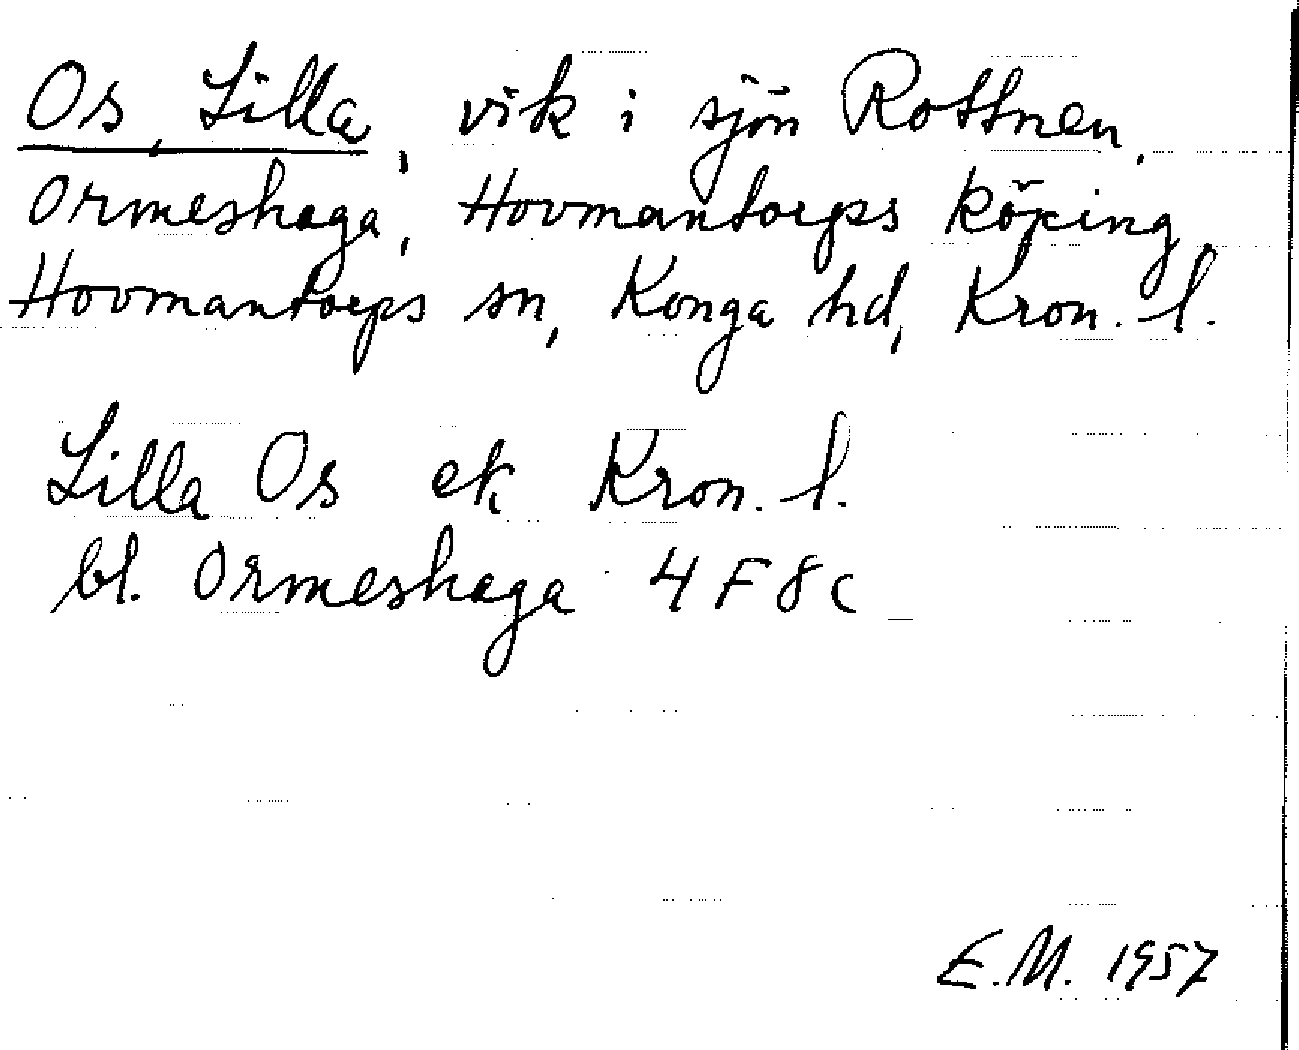 Os, Lilla, vik i sjön Rottnen,
Ormeshaga, Hovmantorps köping,
Hovmantorps sn, Konga hd, Kron. l.
Lilla Os ek Kron. l.
bl. Ormeshaga 4 F 8 c
E.M. 1957